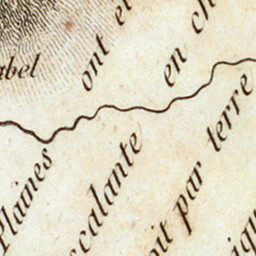 ont et
en ch
Plaines
calante
it par terre